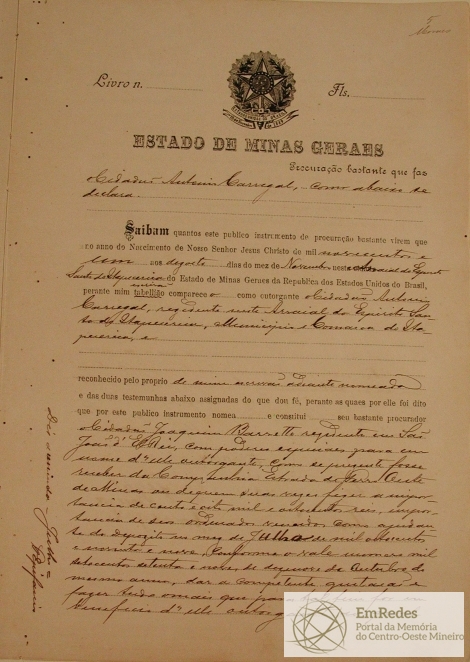 Livro n.
Fls.
ESTADO DE MINAS GERAES
Procuração bastante que faz
o Cidadão Antonio Carregal, como abaixo se
declara.
Saibam quantos este publico instrumento de procuração bastante virem que
no anno do Nascimento de Nosso Senhor Jesus Christo de mil novecentos e
um aos dezoito dias do mez de Novembro neste Arraial do Espirito
Santo de Itapecerica do Estado de Minas Geraes da Republica dos Estados Unidos do Brasil,
perante mim tabellião compareceo o como outorgante o Cidadão Antonio
Carregal, residente neste Arraial do Espirito San-
to de Itapecerica, Municipio e Comarca de Ita-
pecerica, e
reconhecido pelo proprio de mim escrivão adiante nomeado
e das duas testemunhas abaixo assignadas do que dou fé, perante as quaes por elle foi dito
que por este publico instrumento nomea e constitui seu bastante procurador
o Cidadão Joaquim Barretto residente em São
João d'El-Rei, com poderes especiaes para em
nome d'elle outorgante, como se presente fosse
receber da Companhia Estrada de Ferro Oeste
de Minas ou de quem suas vezes fizer a impor-
tancia de cento e oito mil e oitocentos reis, impor-
tancia de seus ordenados vencidos como ajudan-
te do deposito no mez de Julho de mil oitocentos
e noventa e nove, conforme o vale numero mil
setecentos oitenta e nove, de dezenove de Outubro do
mesmo anno, dar a competente quitação e
fazer tudo o mais que para tal fim for em
beneficio d'elle outorgante
EmRedes
Portal da Memória
do Centro-Oeste Mineiro